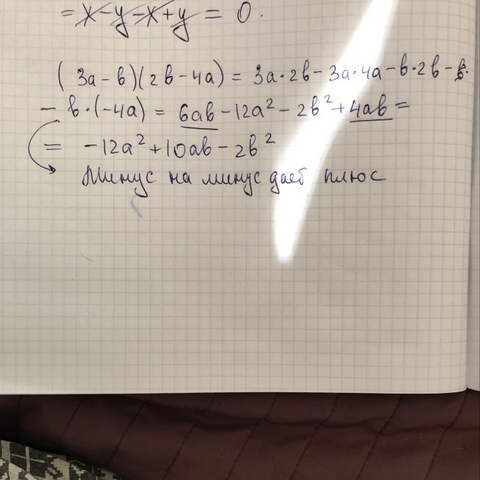 = x-y-x+y = 0.
(3a-в)(2в-4a) = 3a·2в-3a·4a-в·2в-
- в·(-4a) = 6aв-12a²-2в²+4aв=
= -12a²+10aв-2в²
Минус на минус дает плюс